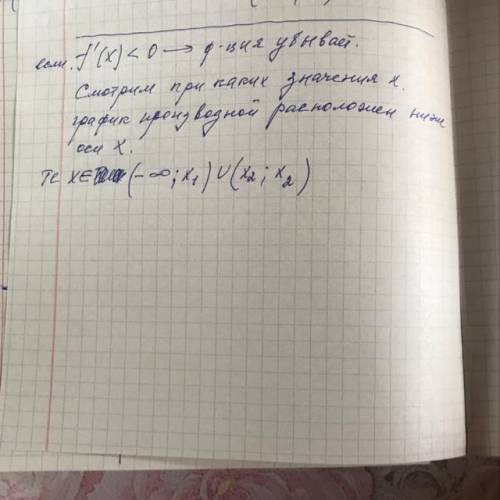 если f'(x) < 0 → ф-ция убывает.
Смотрим при каких значения x.
график производной расположен ниже
оси X.
те x∈ (-∞; x₁) ∪ (x₂; x₂)